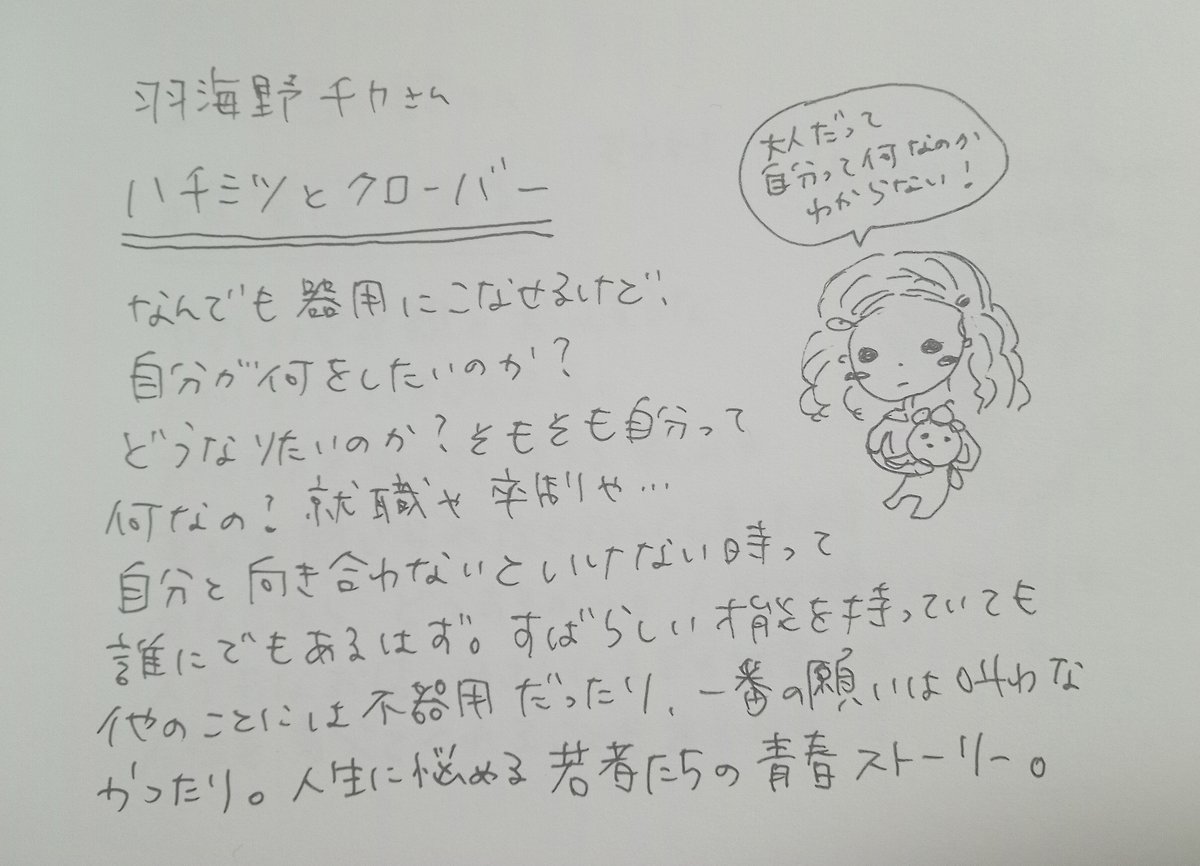 羽海野チカさん
ハチミツとクローバー
大人だって
自分って何なのか
わからない!
なんでも器用にこなせるけど、
自分が何をしたいのか?
どうなりたいのか?そもそも自分って
何なの?就職や卒制や…
自分と向き合わないといけない時って
誰にでもあるはず。すばらしい才能を持っていても
他のことには不器用だったり、一番の願いは叶わな
かったり。人生に悩める若者たちの青春ストーリー。